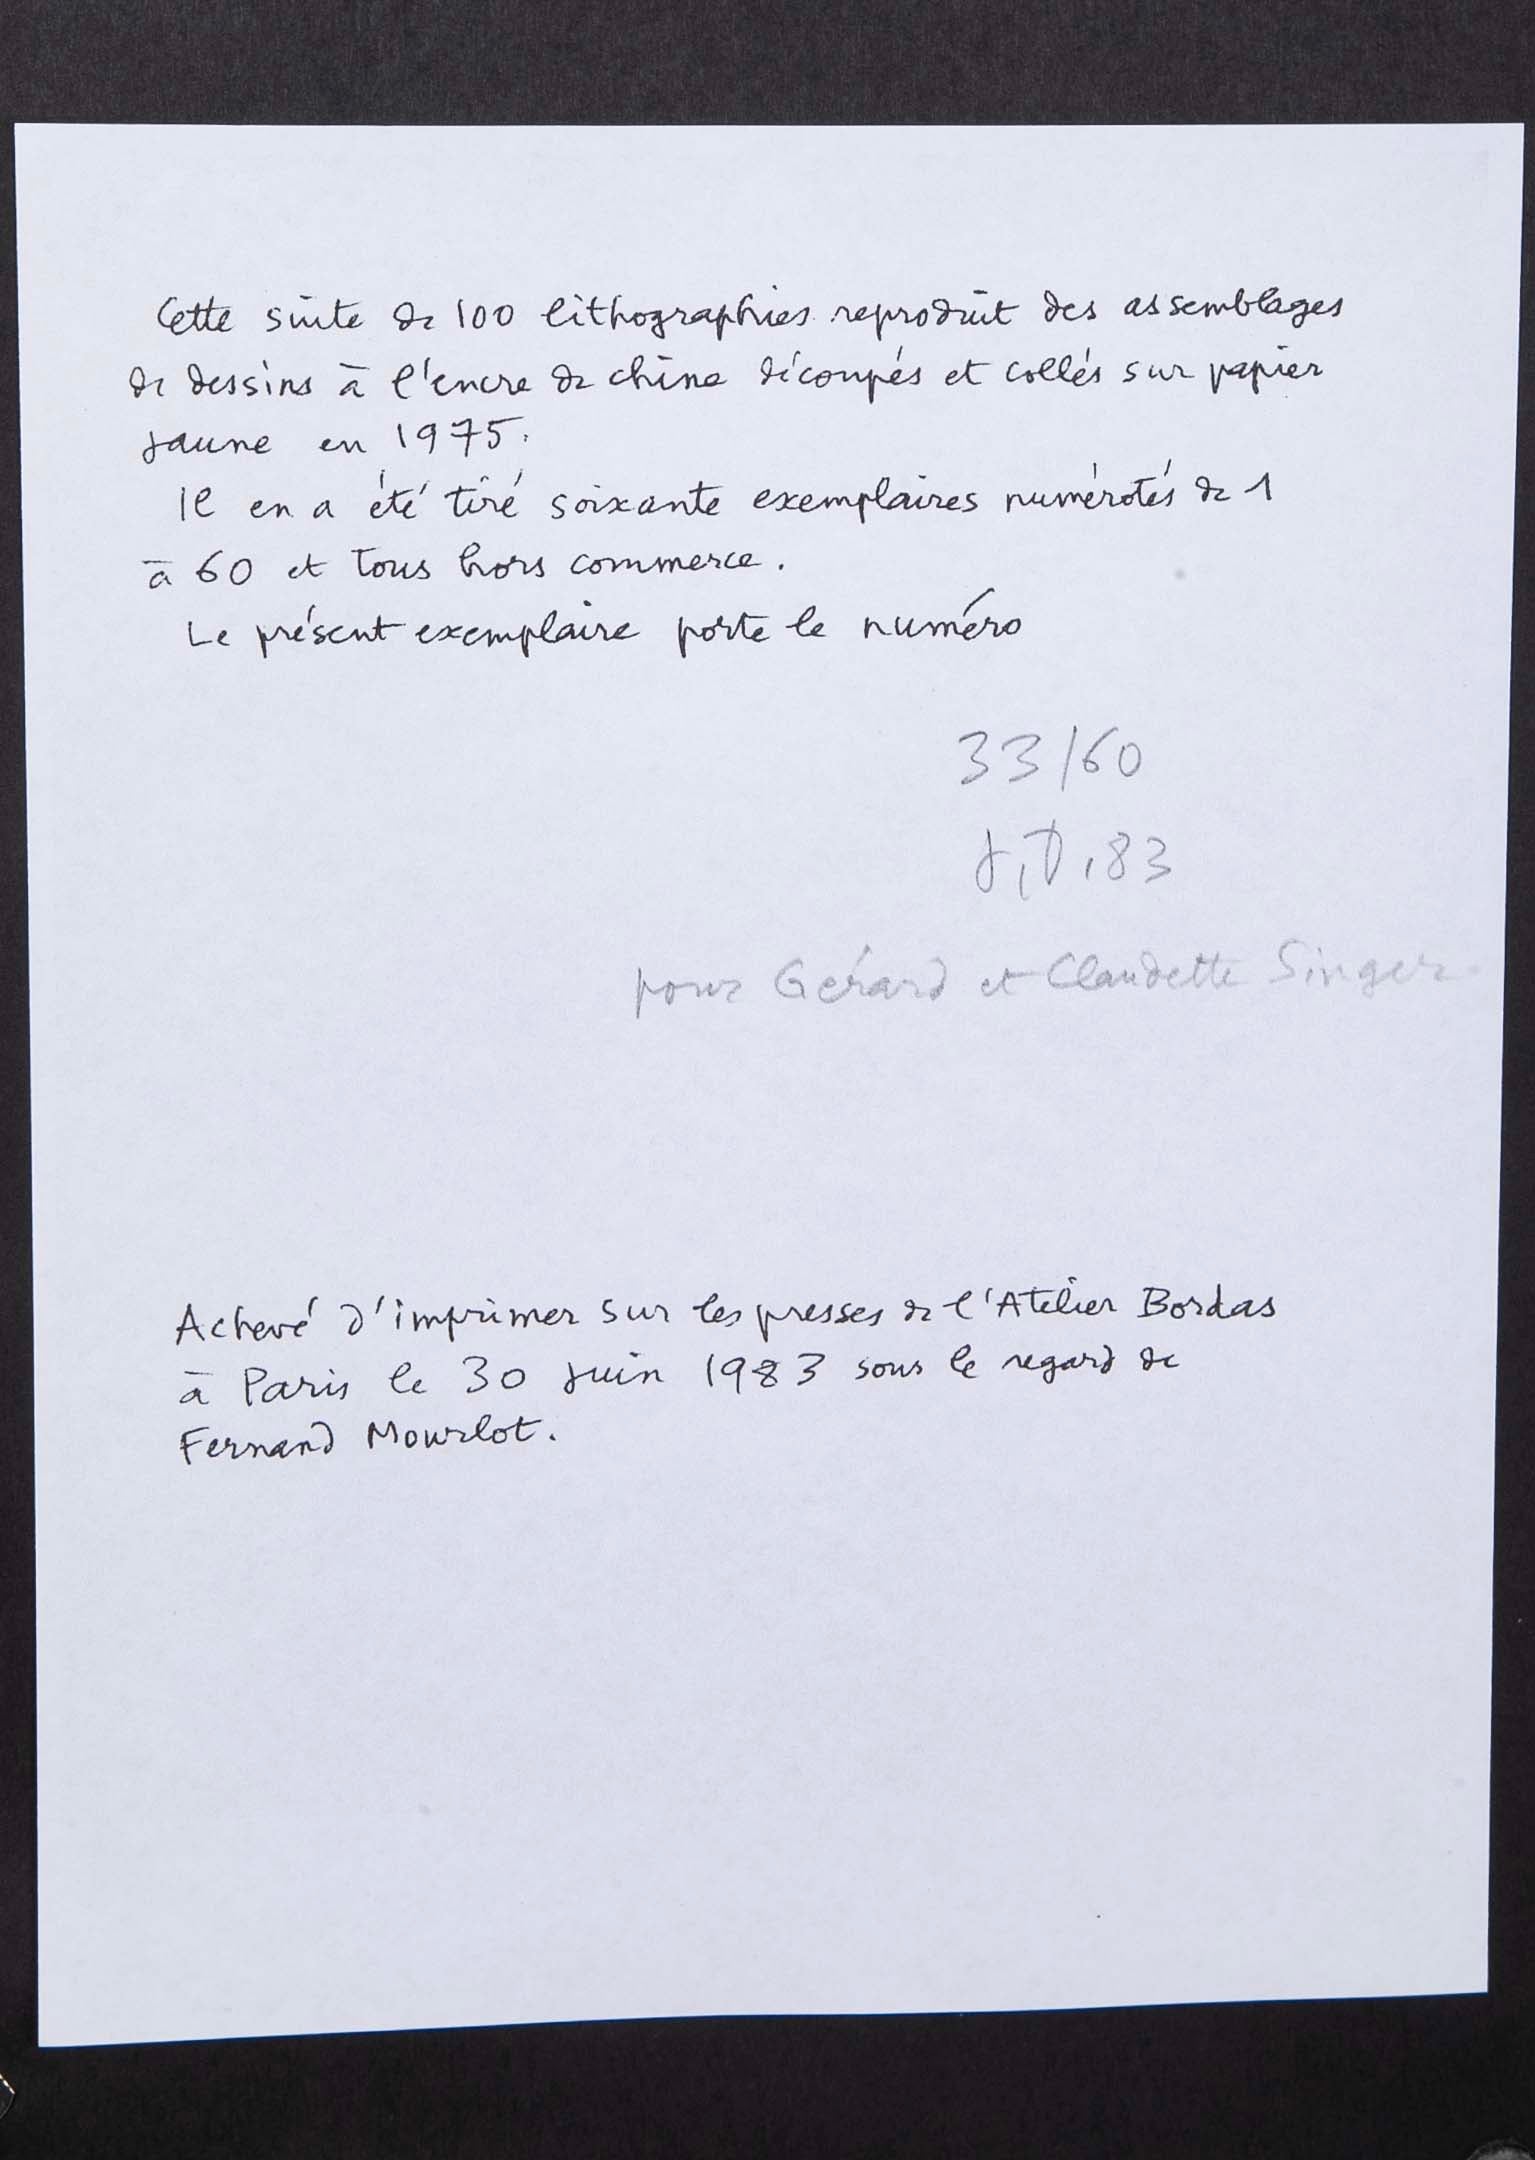 Cette suite de 100 lithographies reproduit des assemblages
de dessins à l'encre de chine découpés et collés sur papier
jaune en 1975.
Il en a été tiré soixante exemplaires numérotés de 1
à 60 et tous hors commerce.
Le présent exemplaire porte le numéro
33/60
J.D.83
pour Gérard et Claudette Singer
Achevé d'imprimer sur les presses de l'Atelier Bordas
à Paris le 30 juin 1983 sous le regard de
Fernand Mourlot.